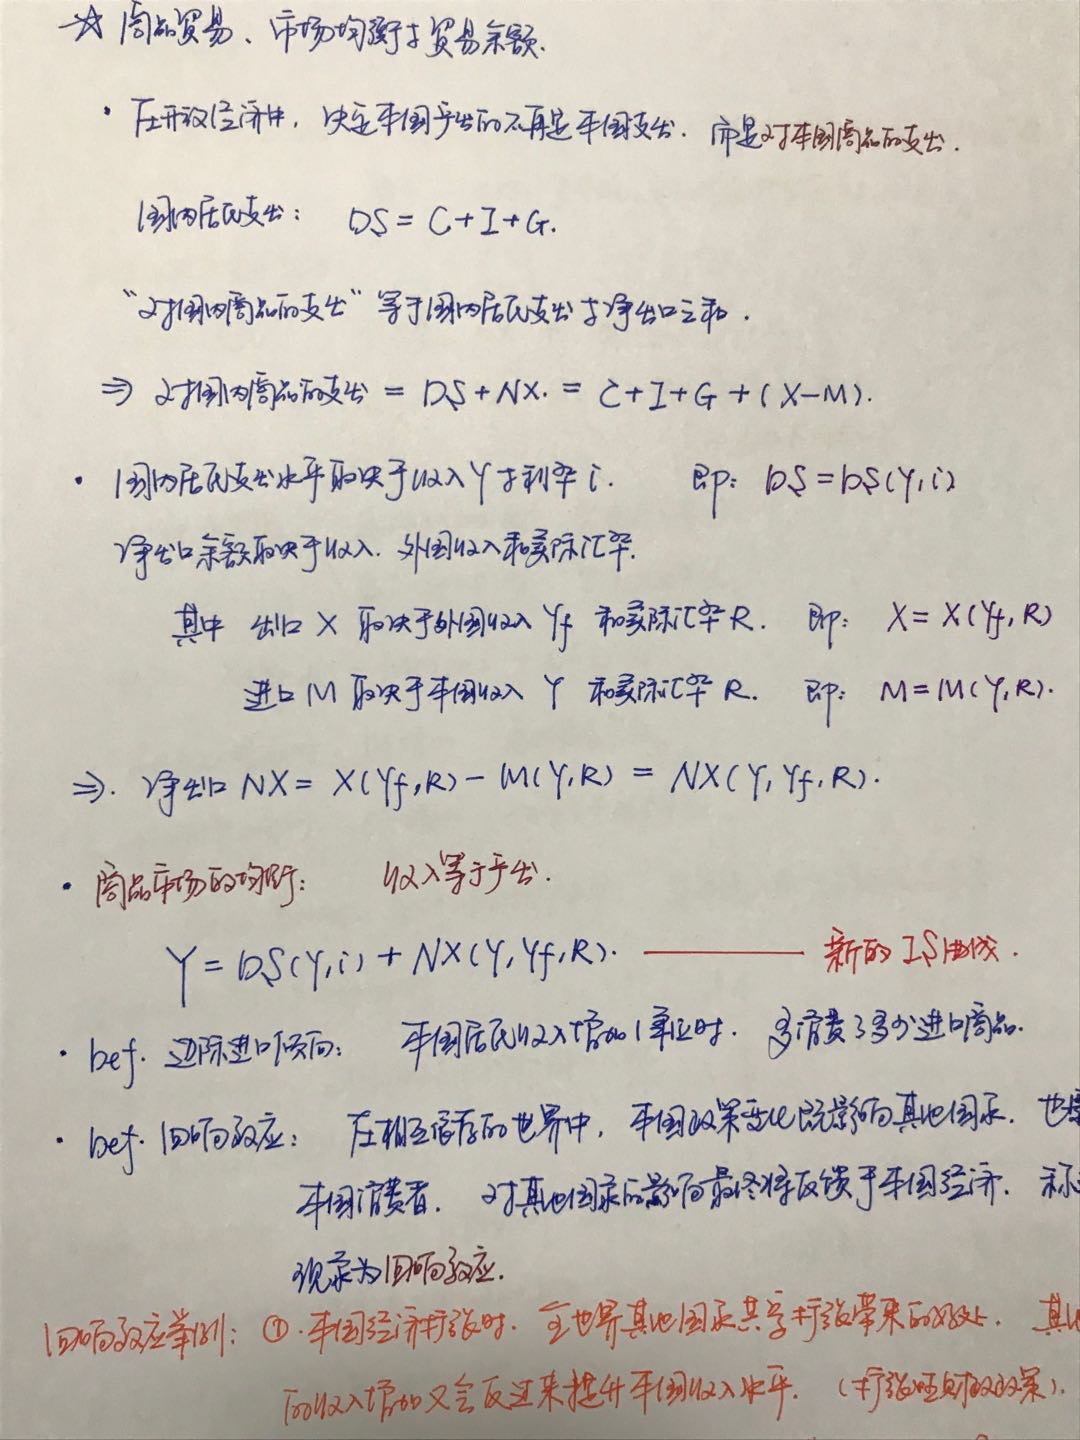 ☆ 商品贸易、市场均衡与贸易余额.
· 在开放经济中, 决定本国产出的不再是本国支出. 而是对本国商品的支出.
国内居民支出: DS = C+I+G.
“对国内商品的支出” 等于国内居民支出与净出口之和.
⇒ 对国内商品的支出 = DS+NX. = C+I+G+(X-M).
· 国内居民支出水平取决于收入 Y 与利率 i. 即: DS=DS(Y,i)
净出口余额取决于收入. 外国收入和实际汇率.
其中 出口 X 取决于外国收入 Yf 和实际汇率 R. 即: X= X(Yf,R)
进口 M 取决于本国收入 Y 和实际汇率 R. 即: M=M(Y,R).
⇒. 净出口 NX= X(Yf,R) - M(Y,R) = NX(Y,Yf,R).
· 商品市场的均衡: 收入等于产出.
Y = DS(Y,i) + NX(Y,Yf,R). —— 新的IS曲线.
· Def. 边际进口倾向: 本国居民收入增加1单位时. 多消费了多少进口商品.
· Def. 回响效应: 在相互依存的世界中, 本国政策变化既影响其他国家. 也影
本国消费者. 对其他国家的影响最终将反馈于本国经济.
现象为回响效应.
回响效应举例: ①. 本国经济扩张时. 全世界其他国家共享扩张带来的好处. 其他
的收入增加又会反过来提升本国收入水平. (扩张性财政政策).